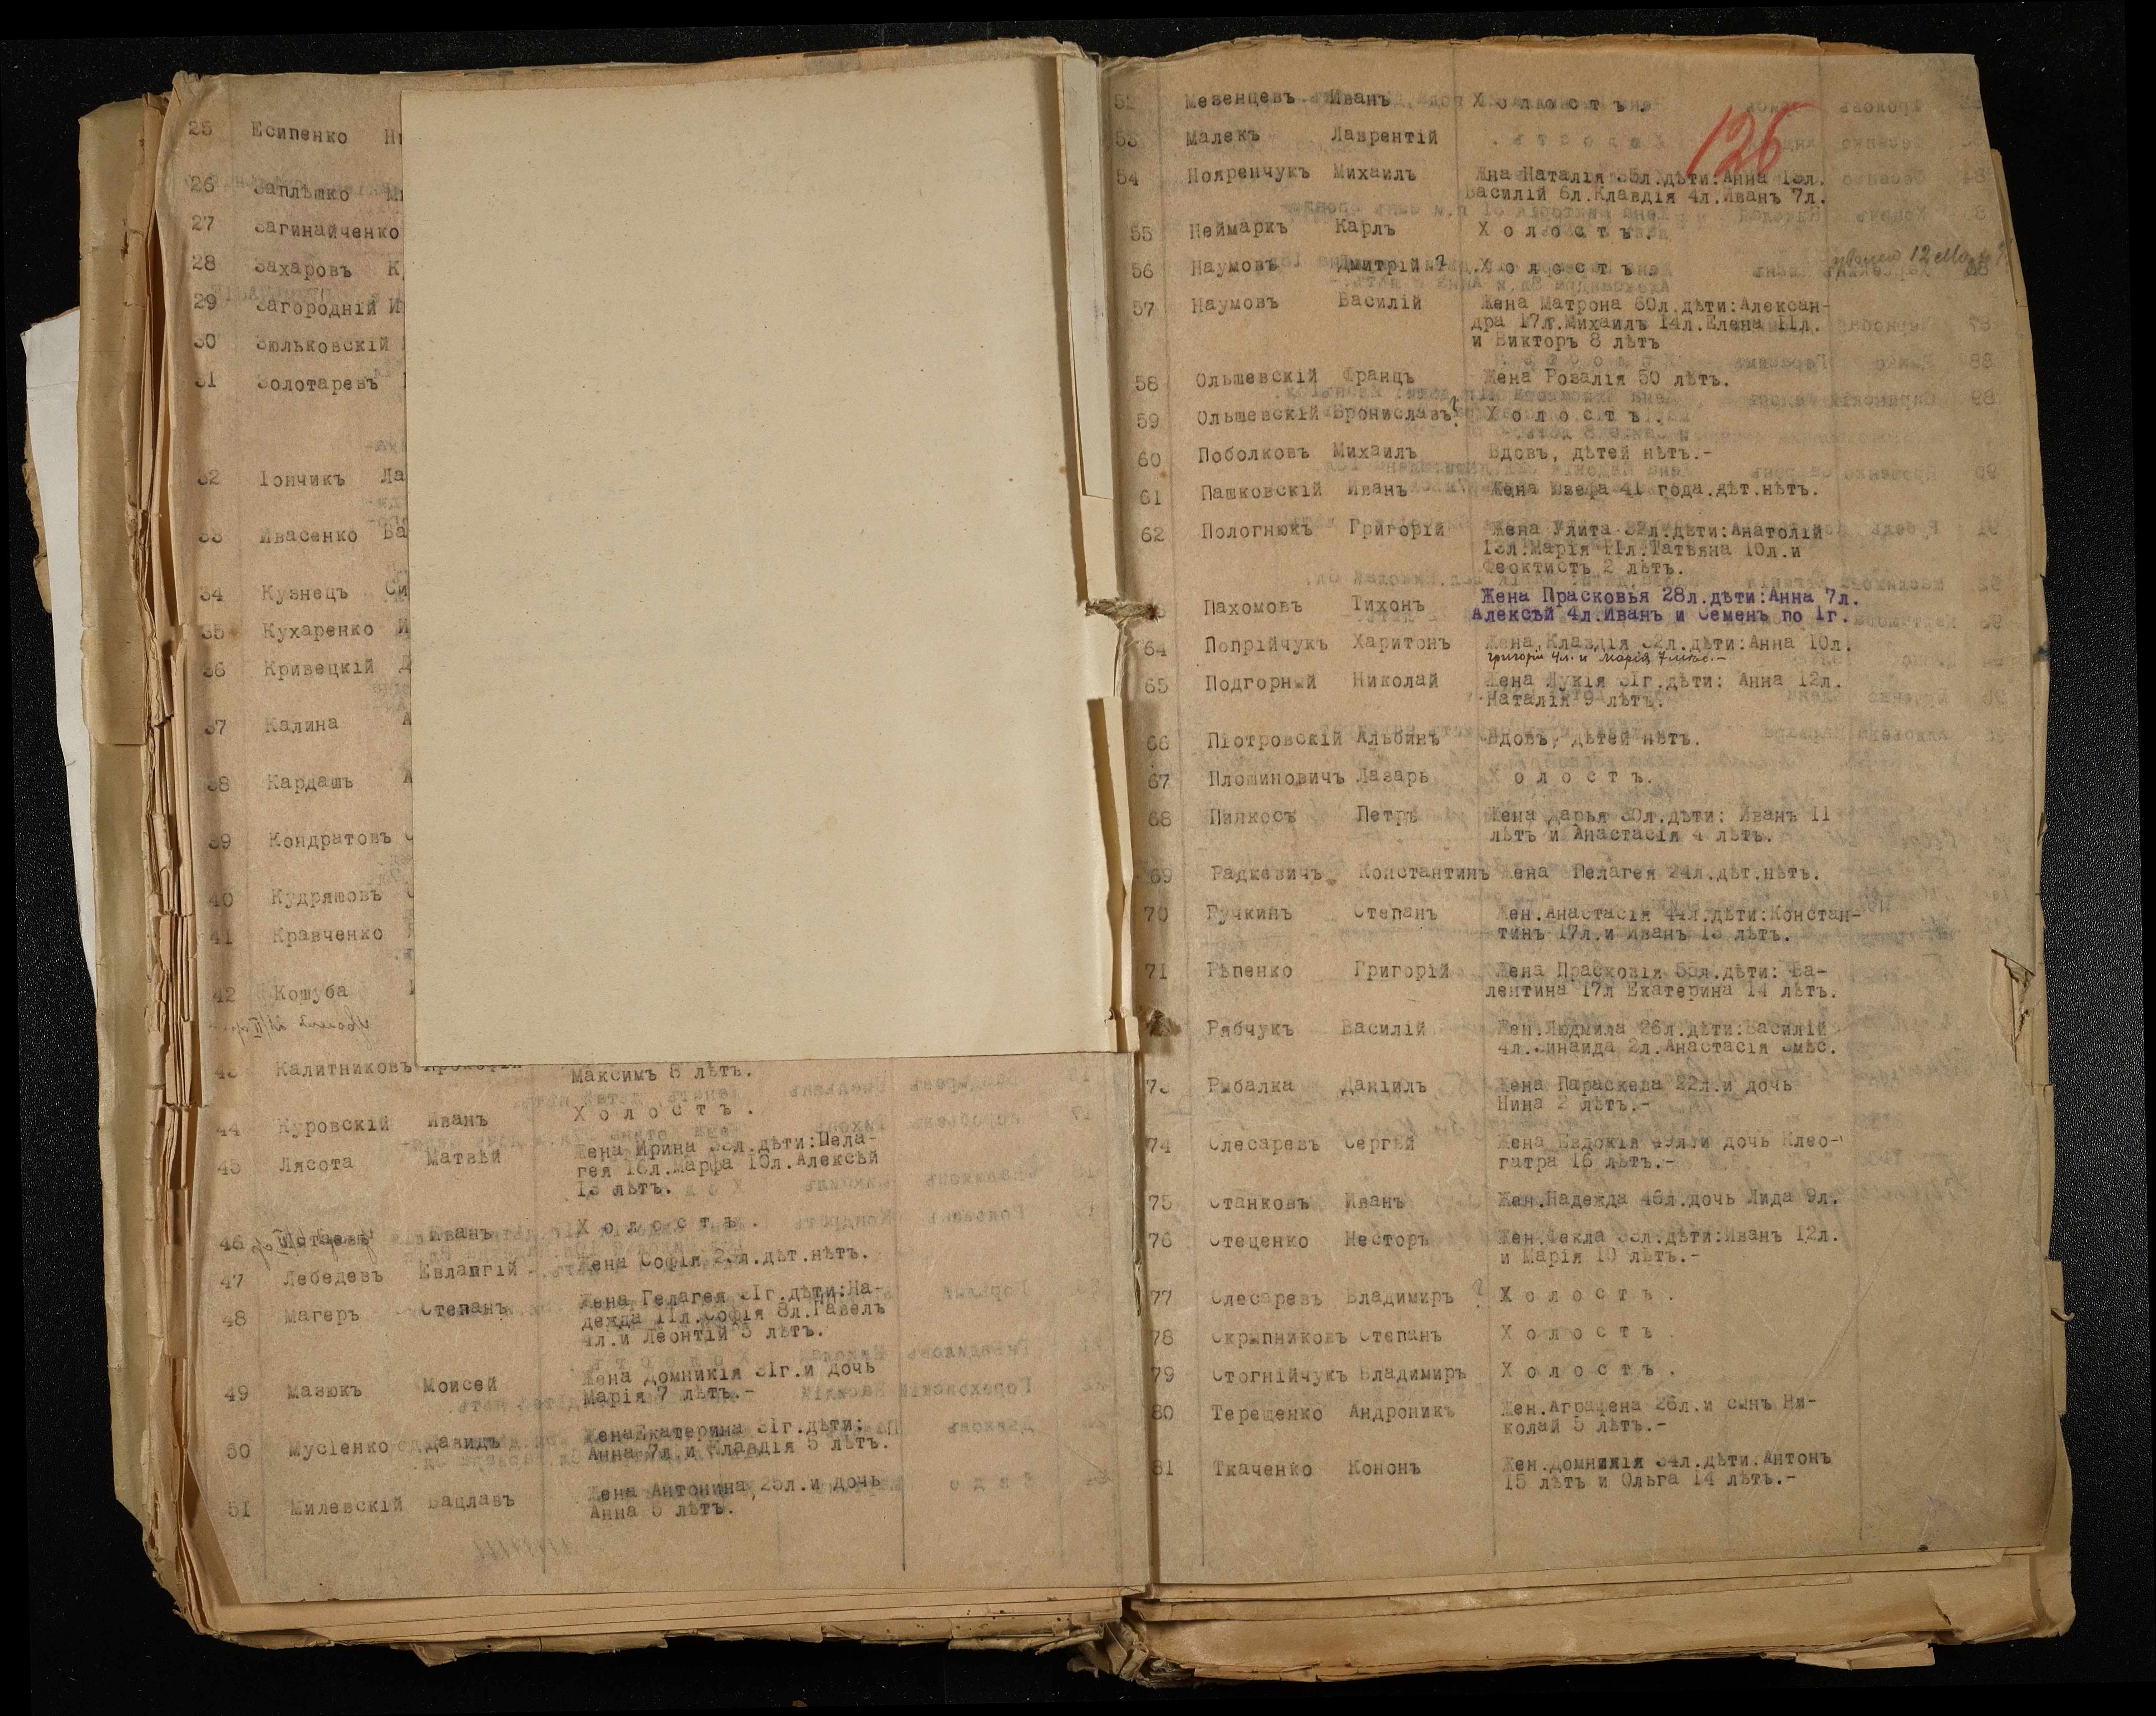 25 Есипенко
26 Заплѣшко
27 Загинайченко
28 Захаровъ
29 Загородній
30 Зюльковскій
31 Золотаревъ
32 Іончикъ Ла
33 Ивасенко Ва
34 Кузнецъ Си
35 Кухаренко И
36 Кривецкій
37 Калина А
38 Кардашъ А
39 Кондратовъ
40 Кудряшовъ
41 Кравченко
42 Кошуба
43 Калитниковъ
Максимъ 8 лѣтъ.
44 Куровскій Иванъ Х о л о с т ъ .
45 Лясота Матвѣй Жена Ирина 38л.дѣти:Пела-
гея 16л.Марфа 10л.Алексѣй
13 лѣтъ.
46 Иванъ Х о л о с т ъ .
47 Лебедевъ Евлампій Жена Софія 23л.дѣт.нѣтъ.
48 Магеръ Степанъ Жена Пелагея 31г.дѣти:На-
дежда 11л.Софія 8л.Павелъ
4л.и Леонтій 3 лѣтъ.
49 Мазюкъ Моисей Жена Домникія 31г.и дочь
Марія 7 лѣтъ.-
50 Мусіенко Давидъ ЖенаЕкатерина 31г.дѣти:
Анна 7л.и Клавдія 5 лѣтъ.
51 Милевскій Вацлавъ Жена Антонина 25л.и дочь
Анна 5 лѣтъ.
126
52 Мезенцевъ Иванъ Х о л о с т ъ.
53 Малекъ Лаврентій
54 Нояренчукъ Михаилъ Жна Наталія 35л.дѣти:Анна 13л.
Василій 6л.Клавдія 4л.Иванъ 7л.
55 Неймаркъ Карлъ Х о л о с т ъ.
56 Наумовъ Дмитрій ? Х о л о с т ъ
57 Наумовъ Василій Жена Матрона 60л.дѣти:Алексан-
дра 17л.Михаилъ 14л.Елена 11л.
и Викторъ 8 лѣтъ
58 Ольшевскій Францъ Жена Розалія 50 лѣтъ.
59 Ольшевскій Брониславъ ? Х о л о с т ъ.
60 Поболковъ Михаилъ Вдовъ, дѣтей нѣтъ.-
61 Пашковскій Иванъ Жена Юзефа 41 года.дѣт.нѣтъ.
62 Пологнюкъ Григорій Жена Улита 32л.дѣти:Анатолій
13л.Марія 11л.Татьяна 10л.и
Феоктистъ 2 лѣтъ.
Пахомовъ Тихонъ Жена Прасковья 28л.дѣти:Анна 7л.
Алексѣй 4л.Иванъ и Семенъ по 1г.
64 Попрійчукъ Харитонъ Жена Клавдія 32л.дѣти:Анна 10л.
Григорій 4л. и Марія 7 мѣс.-
65 Подгорный Николай Жена Лукія 31г.дѣти: Анна 12л.
Наталія 9 лѣтъ.
66 Піотровскій Альбинъ Вдовъ, дѣтей нѣтъ.
67 Плошиновичъ Лазарь Х о л о с т ъ.
68 Пилкосъ Петръ Жена Дарья 30л.дѣти: Иванъ 11
лѣтъ и Анастасія 4 лѣтъ.
69 Радкевичъ Константинъ Жена Пелагея 24л.дѣт.нѣтъ.
70 Ручкинъ Степанъ Жен.Анастасія 44л.дѣти:Констан-
тинъ 17л.и Иванъ 13 лѣтъ.
71 Рѣпенко Григорій Жена Прасковія 53л.дѣти: Ва-
лентина 17л Екатерина 14 лѣтъ.
Рябчукъ Василій Жен.Людмила 26л.дѣти:Василій
4л.Зинаида 2л.Анастасія 3мѣс.
73 Рыбалка Даніилъ Жена Параскева 22л.и дочь
Нина 2 лѣтъ.-
74 Слесаревъ Сергѣй Жена Евдокія 49л.и дочь Клео-
патра 16 лѣтъ.-
75 Станковъ Иванъ Жен.Надежда 46л.дочь Лида 9л.
76 Стеценко Несторъ Жен.Фекла 33л.дѣти:Иванъ 12л.
и Марія 10 лѣтъ.-
77 Слесаревъ Владимиръ ? Х о л о с т ъ .
78 Скрыпниковъ Степанъ Х о л о с т ъ .
79 Стогнійчукъ Владимиръ Х о л о с т ъ .
80 Терещенко Андроникъ Жен.Аграфена 26л.и сынъ Ни-
колай 5 лѣтъ.-
81 Ткаченко Кононъ Жен.Домникія 34л.дѣти:Антонъ
15 лѣтъ и Ольга 14 лѣтъ.-